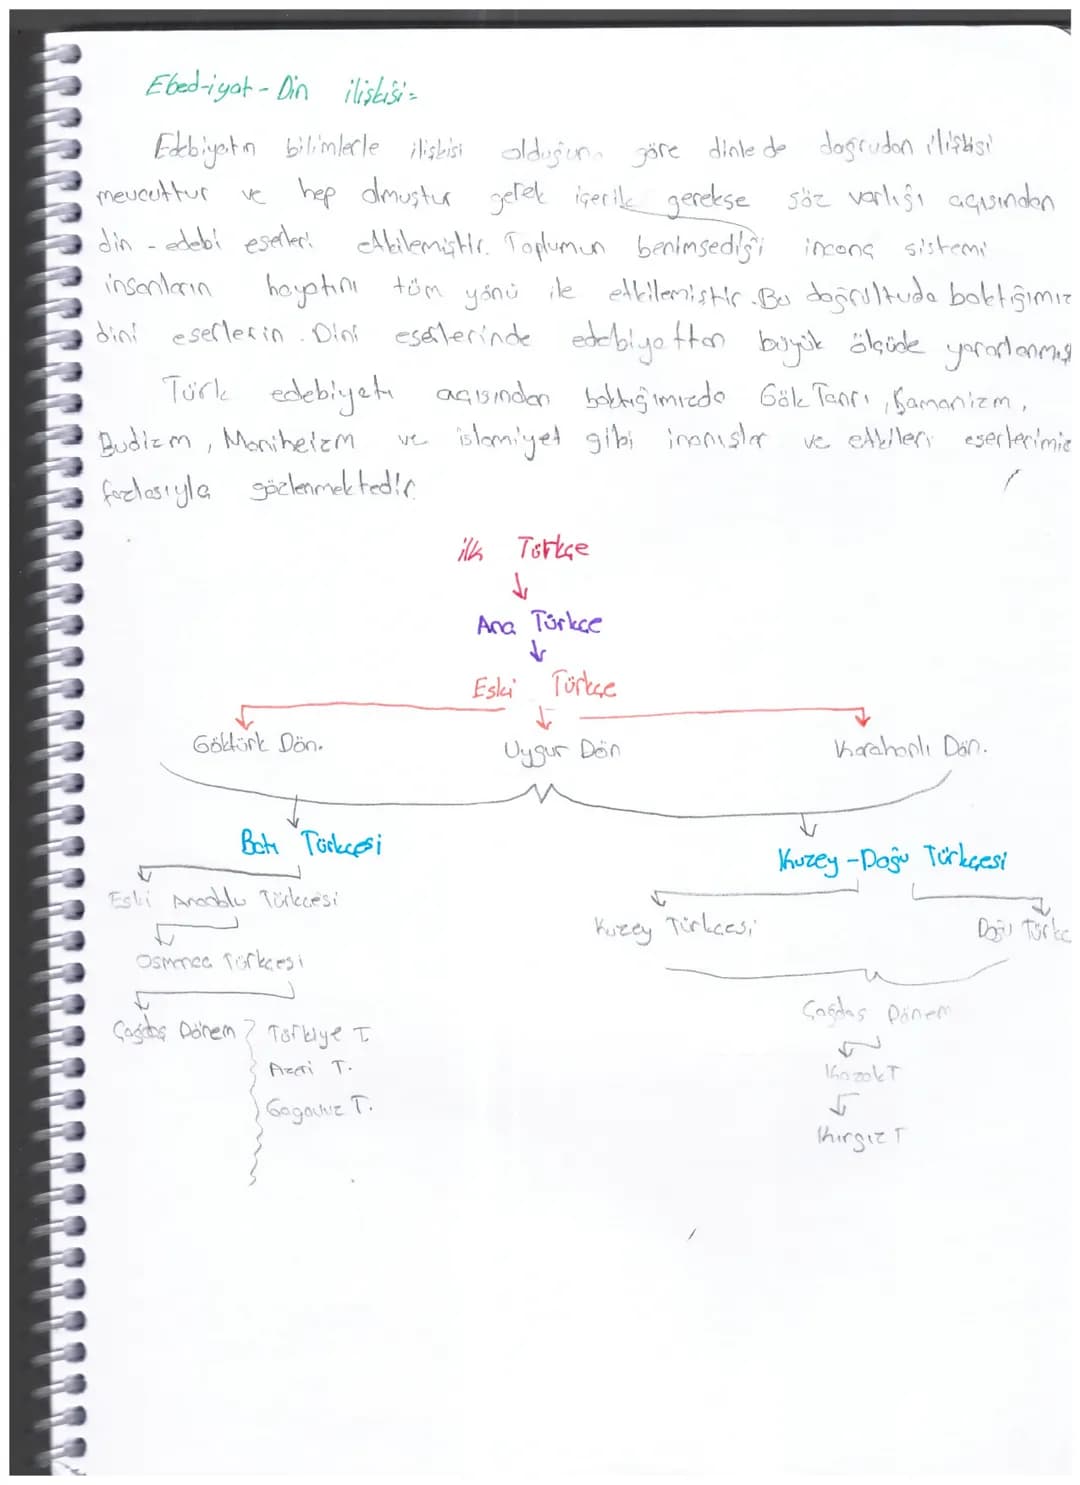 Ebed-iyat - Din ilişkisi =
Edebiyatın bilimlerle ilişkisi olduğuna göre dinle de doğrudan ilişkisi
mevcuttur ve hep olmuştur gerek içerik gerekse söz varlığı açısından
din - edebi eserleri etkilemiştir. Toplumun benimsediği inanç sistemi
insanların hayatını tüm yönü ile etkilemiştir. Bu doğrultuda baktığımız
dini eserlerin. Dini eserlerinde edebiyattan büyük ölçüde yararlanmış
Türk edebiyatı açısından baktığımızda Gök Tanrı, Şamanizm,
Budizm, Maniheizm ve islamiyet gibi inanışlar ve etkileri eserlerimiz
fazlasıyla gözlenmektedir.
ilk Türkçe
Ana Türkçe
Eski Türkçe
Göktürk Dön. Uygur Dön Karahanlı Dön.
Batı Türkçesi Kuzey-Doğu Türkçesi
Eski Anadolu Türkçesi Kuzey Türkçesi Doğu Türkç
Osmanlıca Türkçesi
Çağdaş Dönem Türkiye T. Çağdaş Dönem
Azeri T. Kazak T
Gagavuz T. Kırgız T